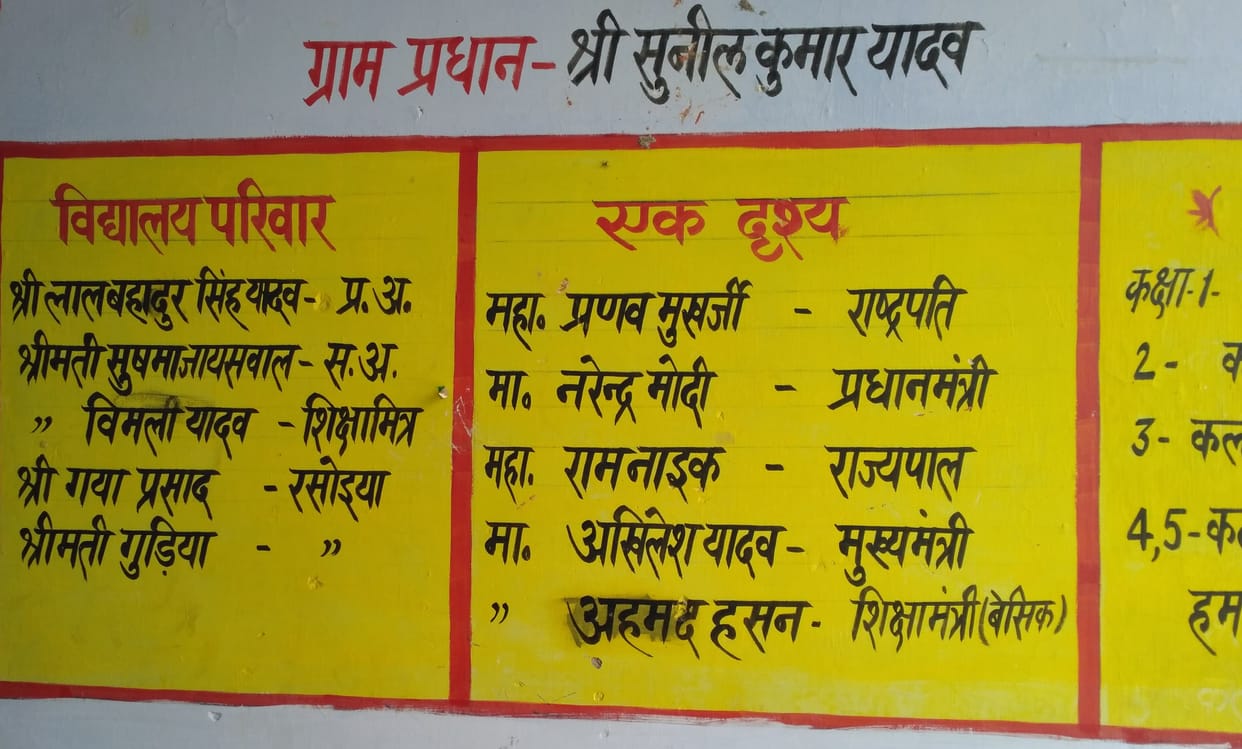 ग्राम प्रधान- श्री सुनील कुमार यादव
विद्यालय परिवार
श्री लाल बहादुर सिंह यादव- प्र.अ.
श्रीमती सुषमा जायसवाल- स.अ.
,, विमली यादव - शिक्षामित्र
श्री गया प्रसाद - रसोइया
श्रीमती गुड़िया - ,,
एक दृश्य
महा. प्रणव मुखर्जी - राष्ट्रपति
मा. नरेन्द्र मोदी - प्रधानमंत्री
महा. राम नाइक - राज्यपाल
मा. अखिलेश यादव- मुख्यमंत्री
,, अहमद हसन- शिक्षामंत्री(बेसिक)
कक्षा-1-
2-
3- कल
4,5-
हम